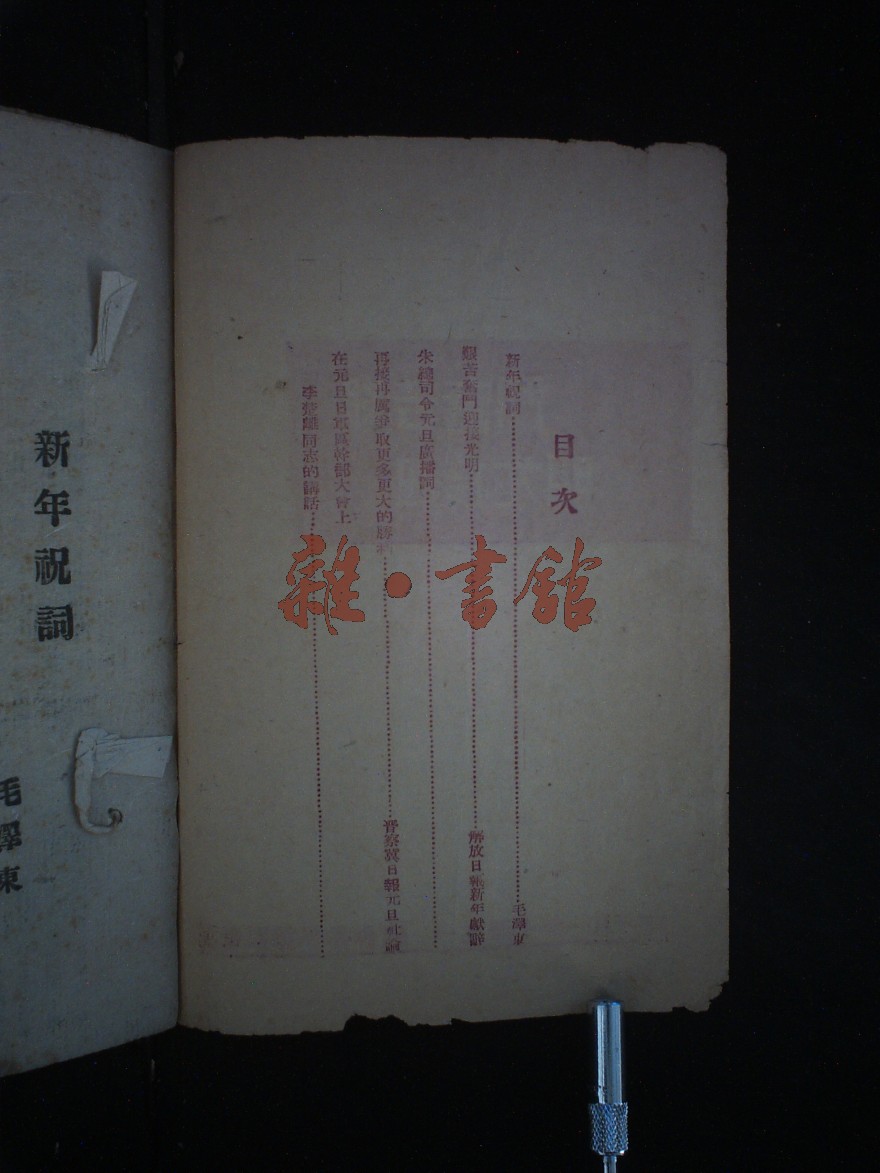 目次
新年祝詞……毛澤東
艱苦奮鬥迎接光明……解放日報新年獻辭
朱總司令元旦廣播詞……
再接再厲爭取更多更大的勝利……晉察冀日報元旦社論
在元旦日軍區幹部大會上
李楚離同志的講話……
新年祝詞
毛澤東
雜·書館